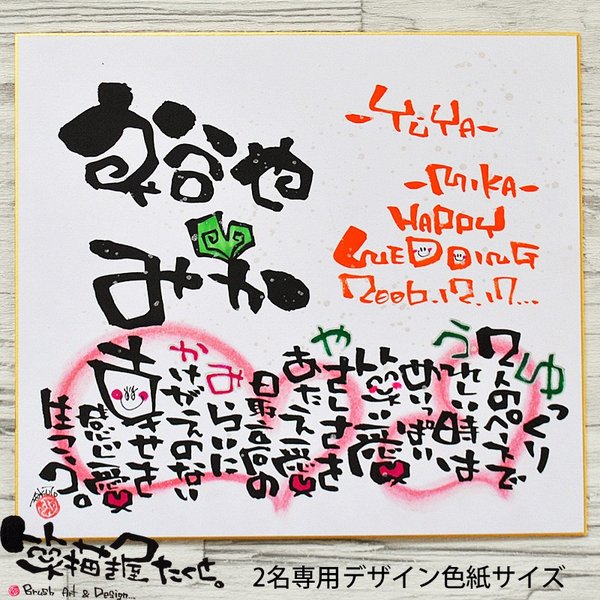 裕や
みか
-YūYA-
-MIKA-
HAPPY
WEDDING
2006.12.17...
ゆっくり
2人のペースで
うれしい時は
めいっぱい
笑い愛
やさしさを
あたえ愛
最高の
みらいに
かけがえのない
幸せを
感じ愛
笑描き屋たくと。
Brush Art & Design...
2名専用デザイン色紙サイズ